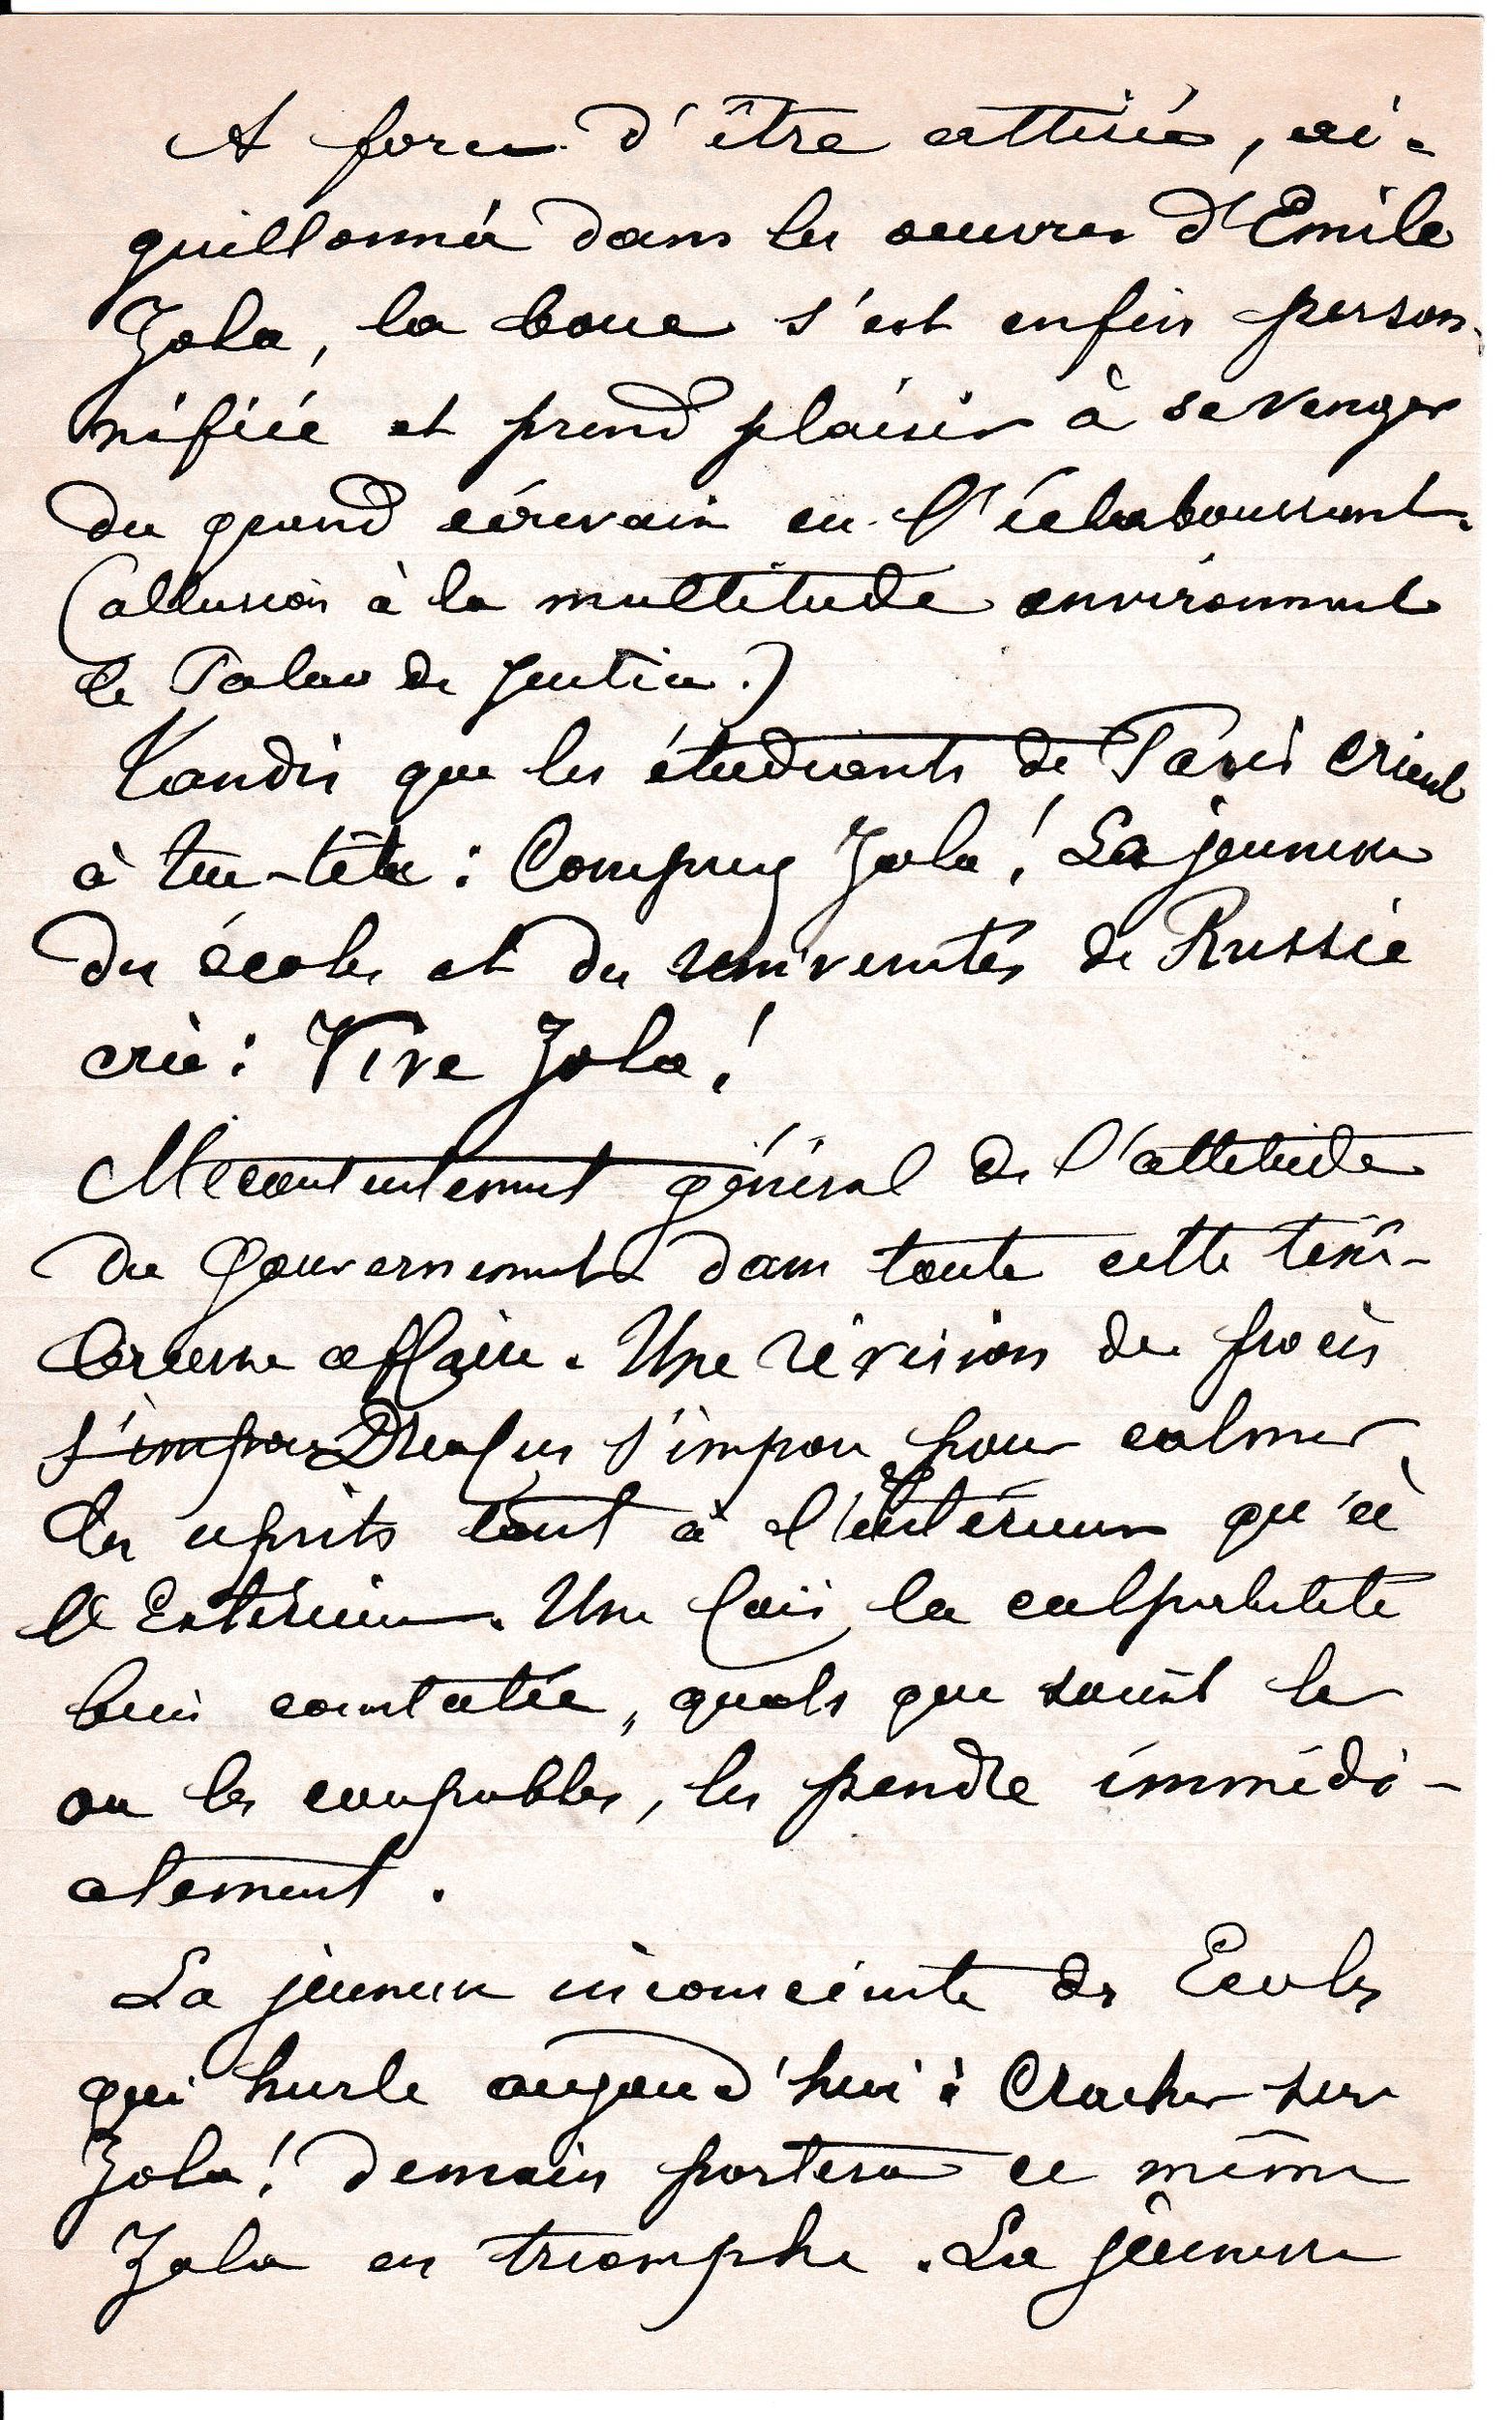 A force d'être attisée, ai-
guillonnée dans les oeuvres d'Emile
Zola, la boue s'est enfin person-
nifiée et prend plaisir à se venger
du grand écrivain en l'éclaboussant.
(allusion à la multitude environnant
le Palais de Justice.)
Tandis que les étudiants de Paris crient
à tue-tête : Conspuez Zola! La jeunesse
des écoles et des universités de Russie
crie : Vive Zola!
Mécontentement général de l'attitude
du Gouvernement dans toute cette téné-
breuse affaire. Une révision du procès
s'impose Dreyfus s'impose pour calmer
les esprits tant à l'Intérieur qu'à
l'Extérieur. Une fois la culpabilité
bien constatée, quels que soient le
ou les coupables, les pendre immédi-
atement.
La jeunesse inconsciente des Ecoles
qui hurle aujourd'hui : Cracher sur
Zola! demain portera ce même
Zola en triomphe. La jeunesse